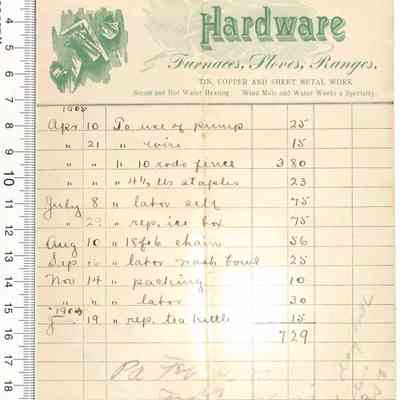 Hardware
Furnaces, Stoves, Ranges.
TIN, COPPER AND SHEET METAL WORK
Steam and Hot Water Heating. Wind Mills and Water Works a Specialty.
1908
Apr 10 To use of pump 25
" 21 " wire 15
" " " 10 rods fence 3 80
" " " 4½ lbs staples 23
July 8 " labor self 75
" 29 " rep. ice box 75
Aug 10 " 18 feb chain 56
Sep " labor wash bowl 25
Nov 14 " packing 10
" " " labor 30
19 " rep. tea kettle 15
7 29
Pd
4
5
6
7
8
9
10
11
12
13
14
15
16
17
18